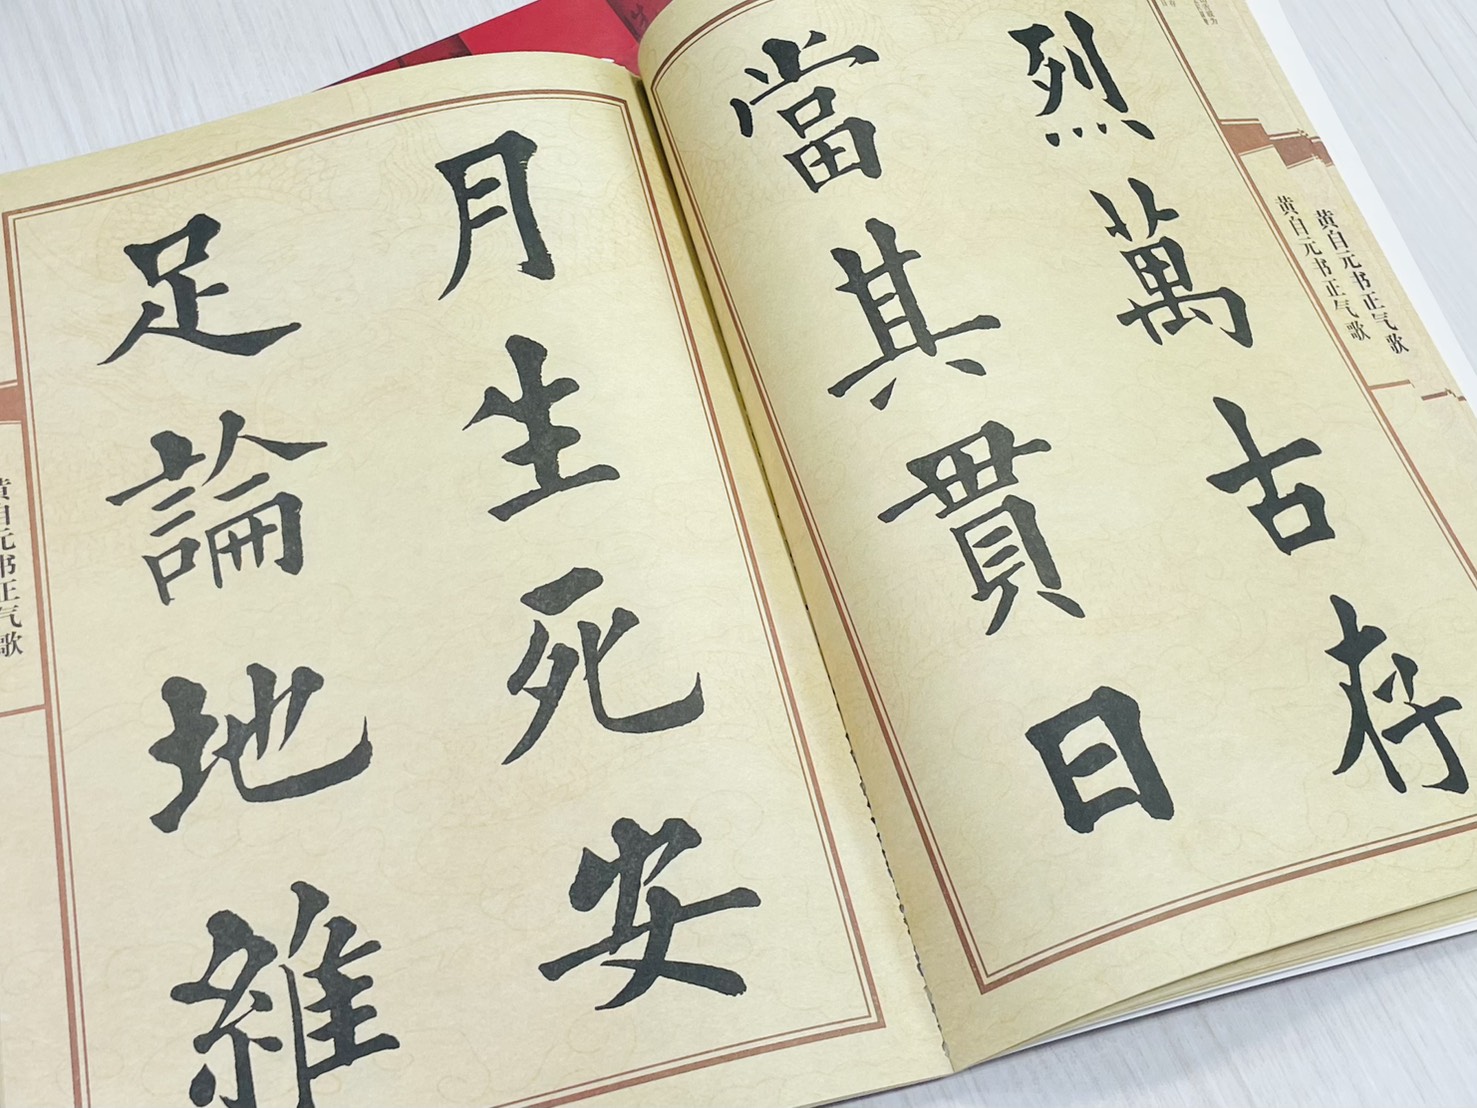 烈萬古存
當其貫日
月生死安
足論地維
黄自元书正气歌
黄自元书正气歌
黄自元书正气歌